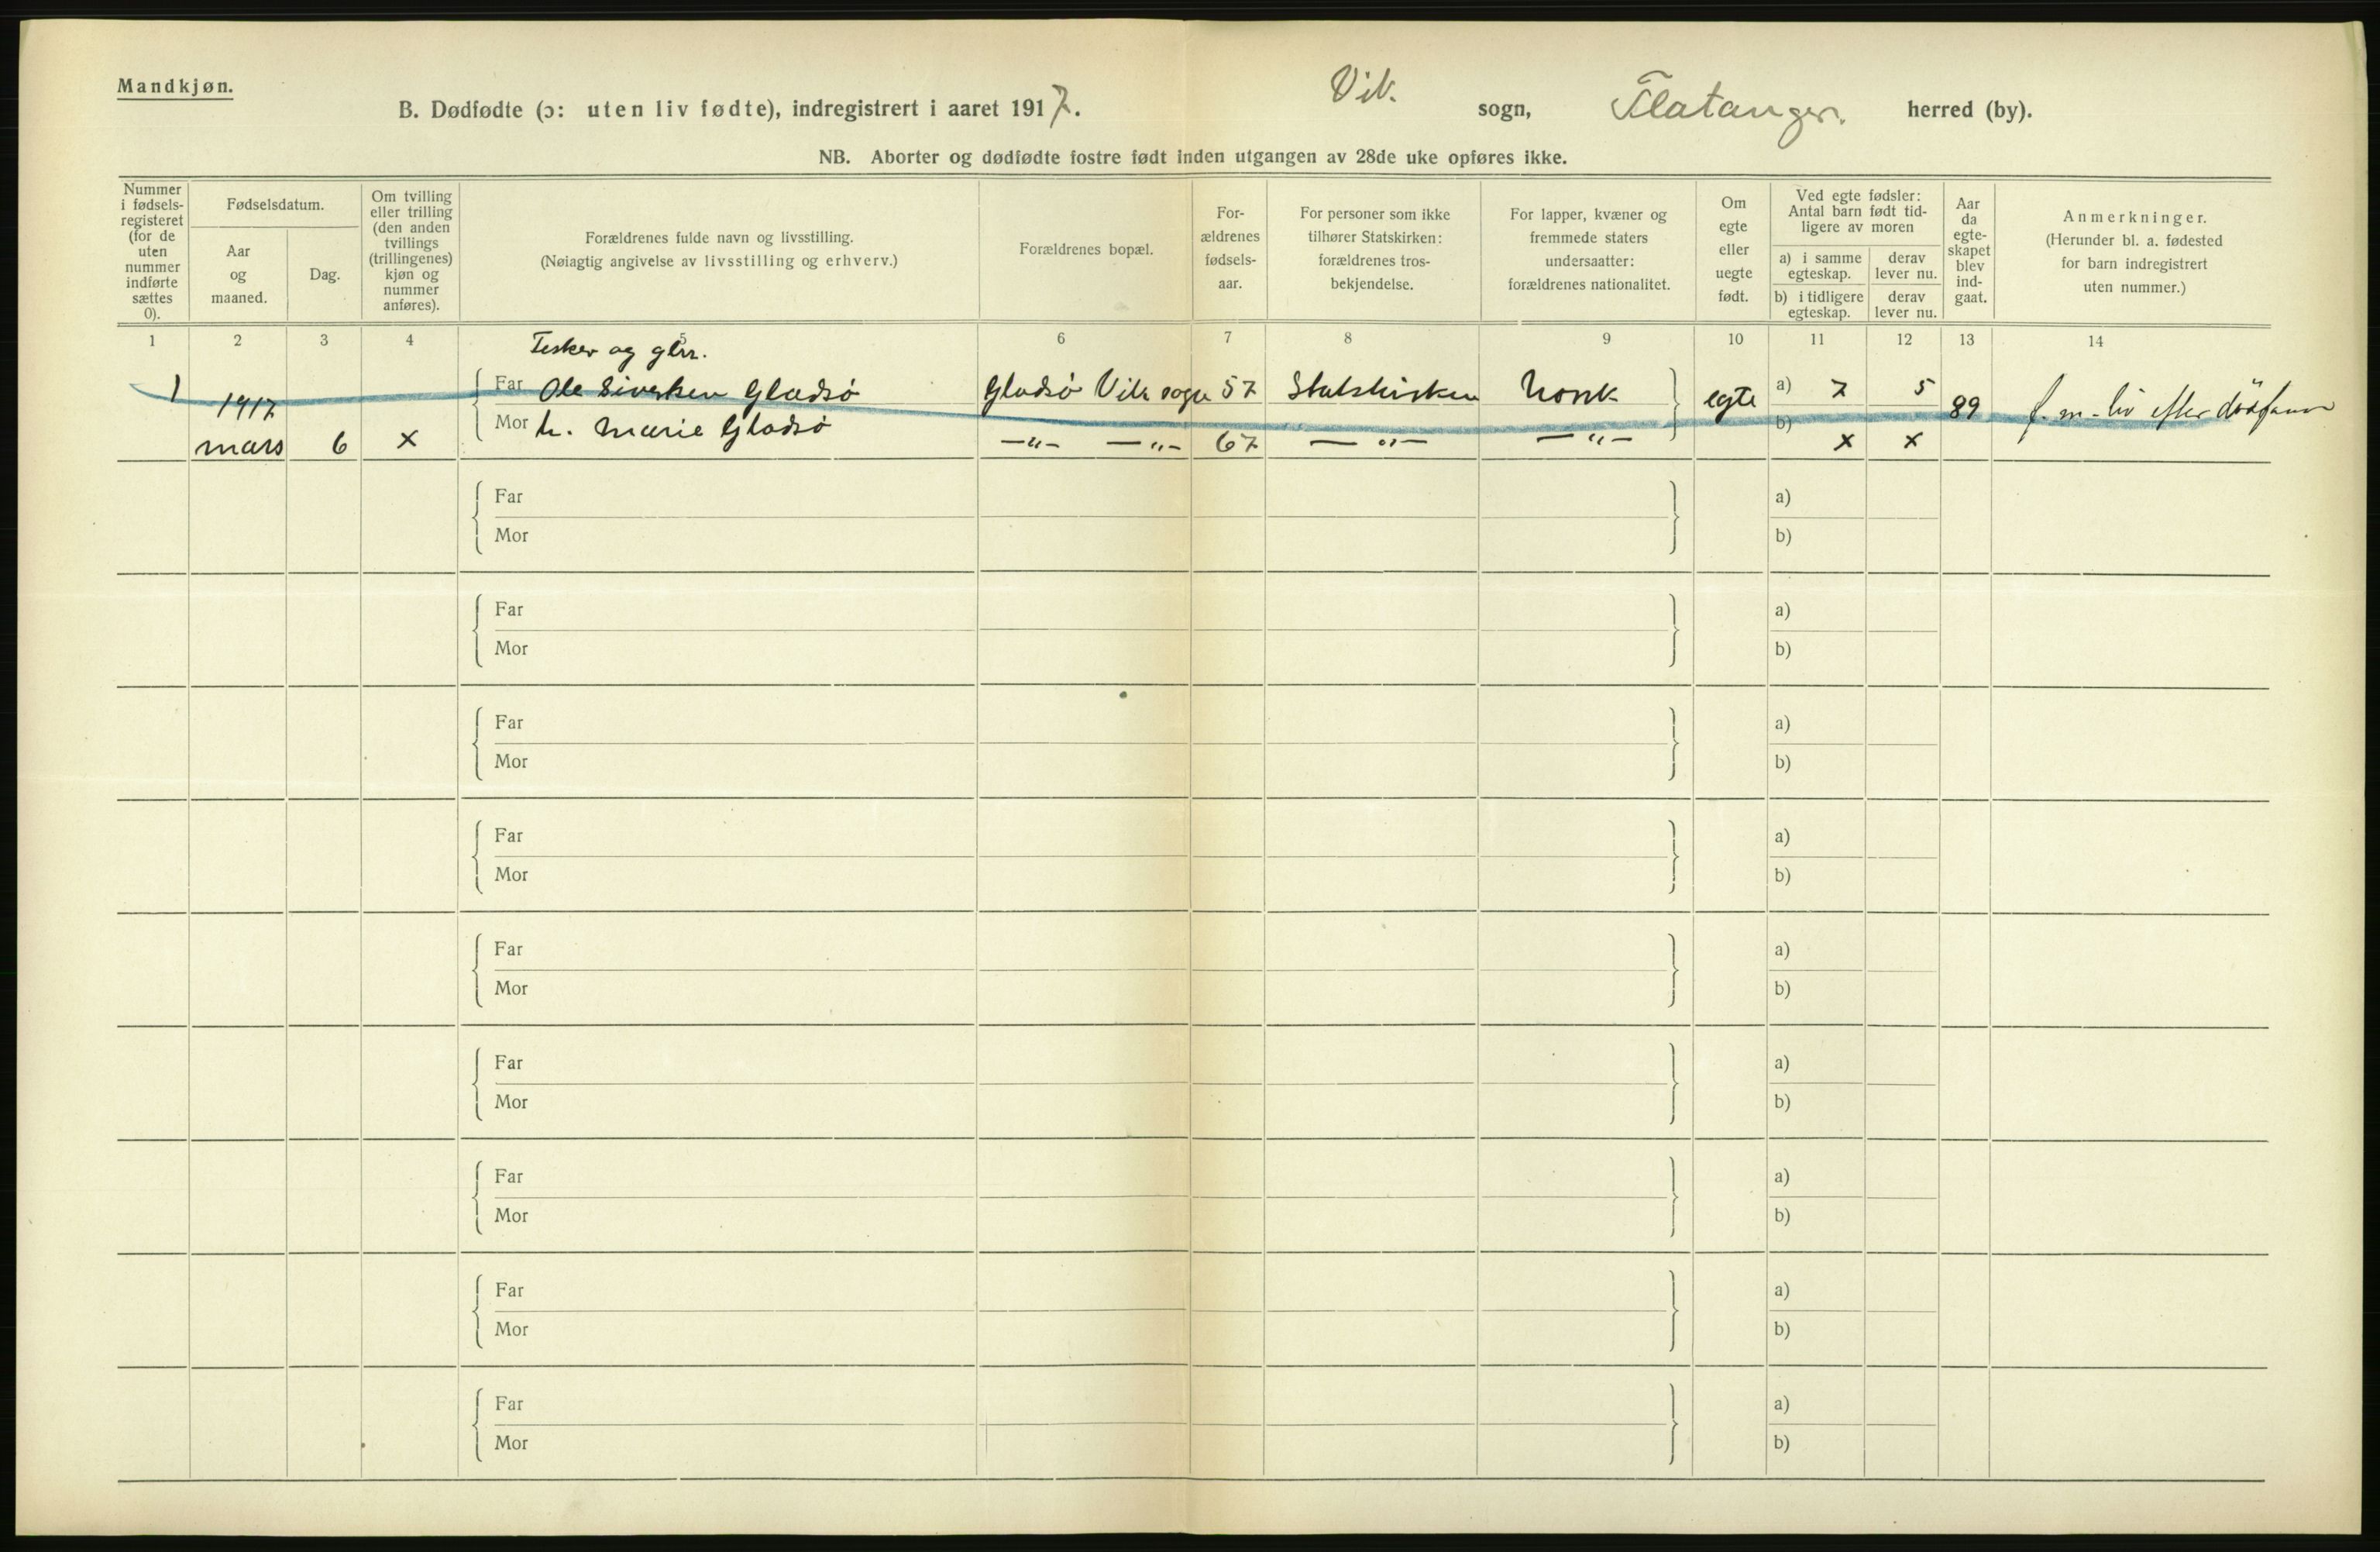 Mandkjøn.
B. Dødfødte (ɔ: uten liv fødte), indregistrert i aaret 1917. Vik. sogn, Flatanger. herred (by).
NB. Aborter og dødfødte fostre født inden utgangen av 28de uke opføres ikke.
Nummer i fødsels-registeret (for de uten nummer indførte sættes 0).
Fødselsdatum.
Aar og maaned.
Dag.
Om tvilling eller trilling (den anden tvillings (trillingenes) kjøn og nummer anføres).
Forældrenes fulde navn og livsstilling.
(Nøiagtig angivelse av livsstilling og erhverv.)
Forældrenes bopæl.
For-ældrenes fødsels-aar.
For personer som ikke tilhører Statskirken: forældrenes tros-bekjendelse.
For lapper, kvæner og fremmede staters undersaatter: forældrenes nationalitet.
Om egte eller uegte født.
Ved egte fødsler: Antal barn født tid-ligere av moren
a) i samme egteskap.
derav lever nu.
b) i tidligere egteskap.
derav lever nu.
Aar da egte-skapet blev ind-gaat.
Anmerkninger.
(Herunder bl. a. fødested for barn indregistrert uten nummer.)
1 2 3 4 5 6 7 8 9 10 11 12 13 14
Fisker og
1 1917 Far Ole Sivertsen Gladsø Gladsø Vik sogn 57 Statskirken Norsk egte a) 7 5 89 f. m. liv efter
mars 6 x Mor h. Marie Gladsø —"— —"— 67 —"— —"— b) x x
Far a)
Mor b)
Far a)
Mor b)
Far a)
Mor b)
Far a)
Mor b)
Far a)
Mor b)
Far a)
Mor b)
Far a)
Mor b)
Far a)
Mor b)
Far a)
Mor b)